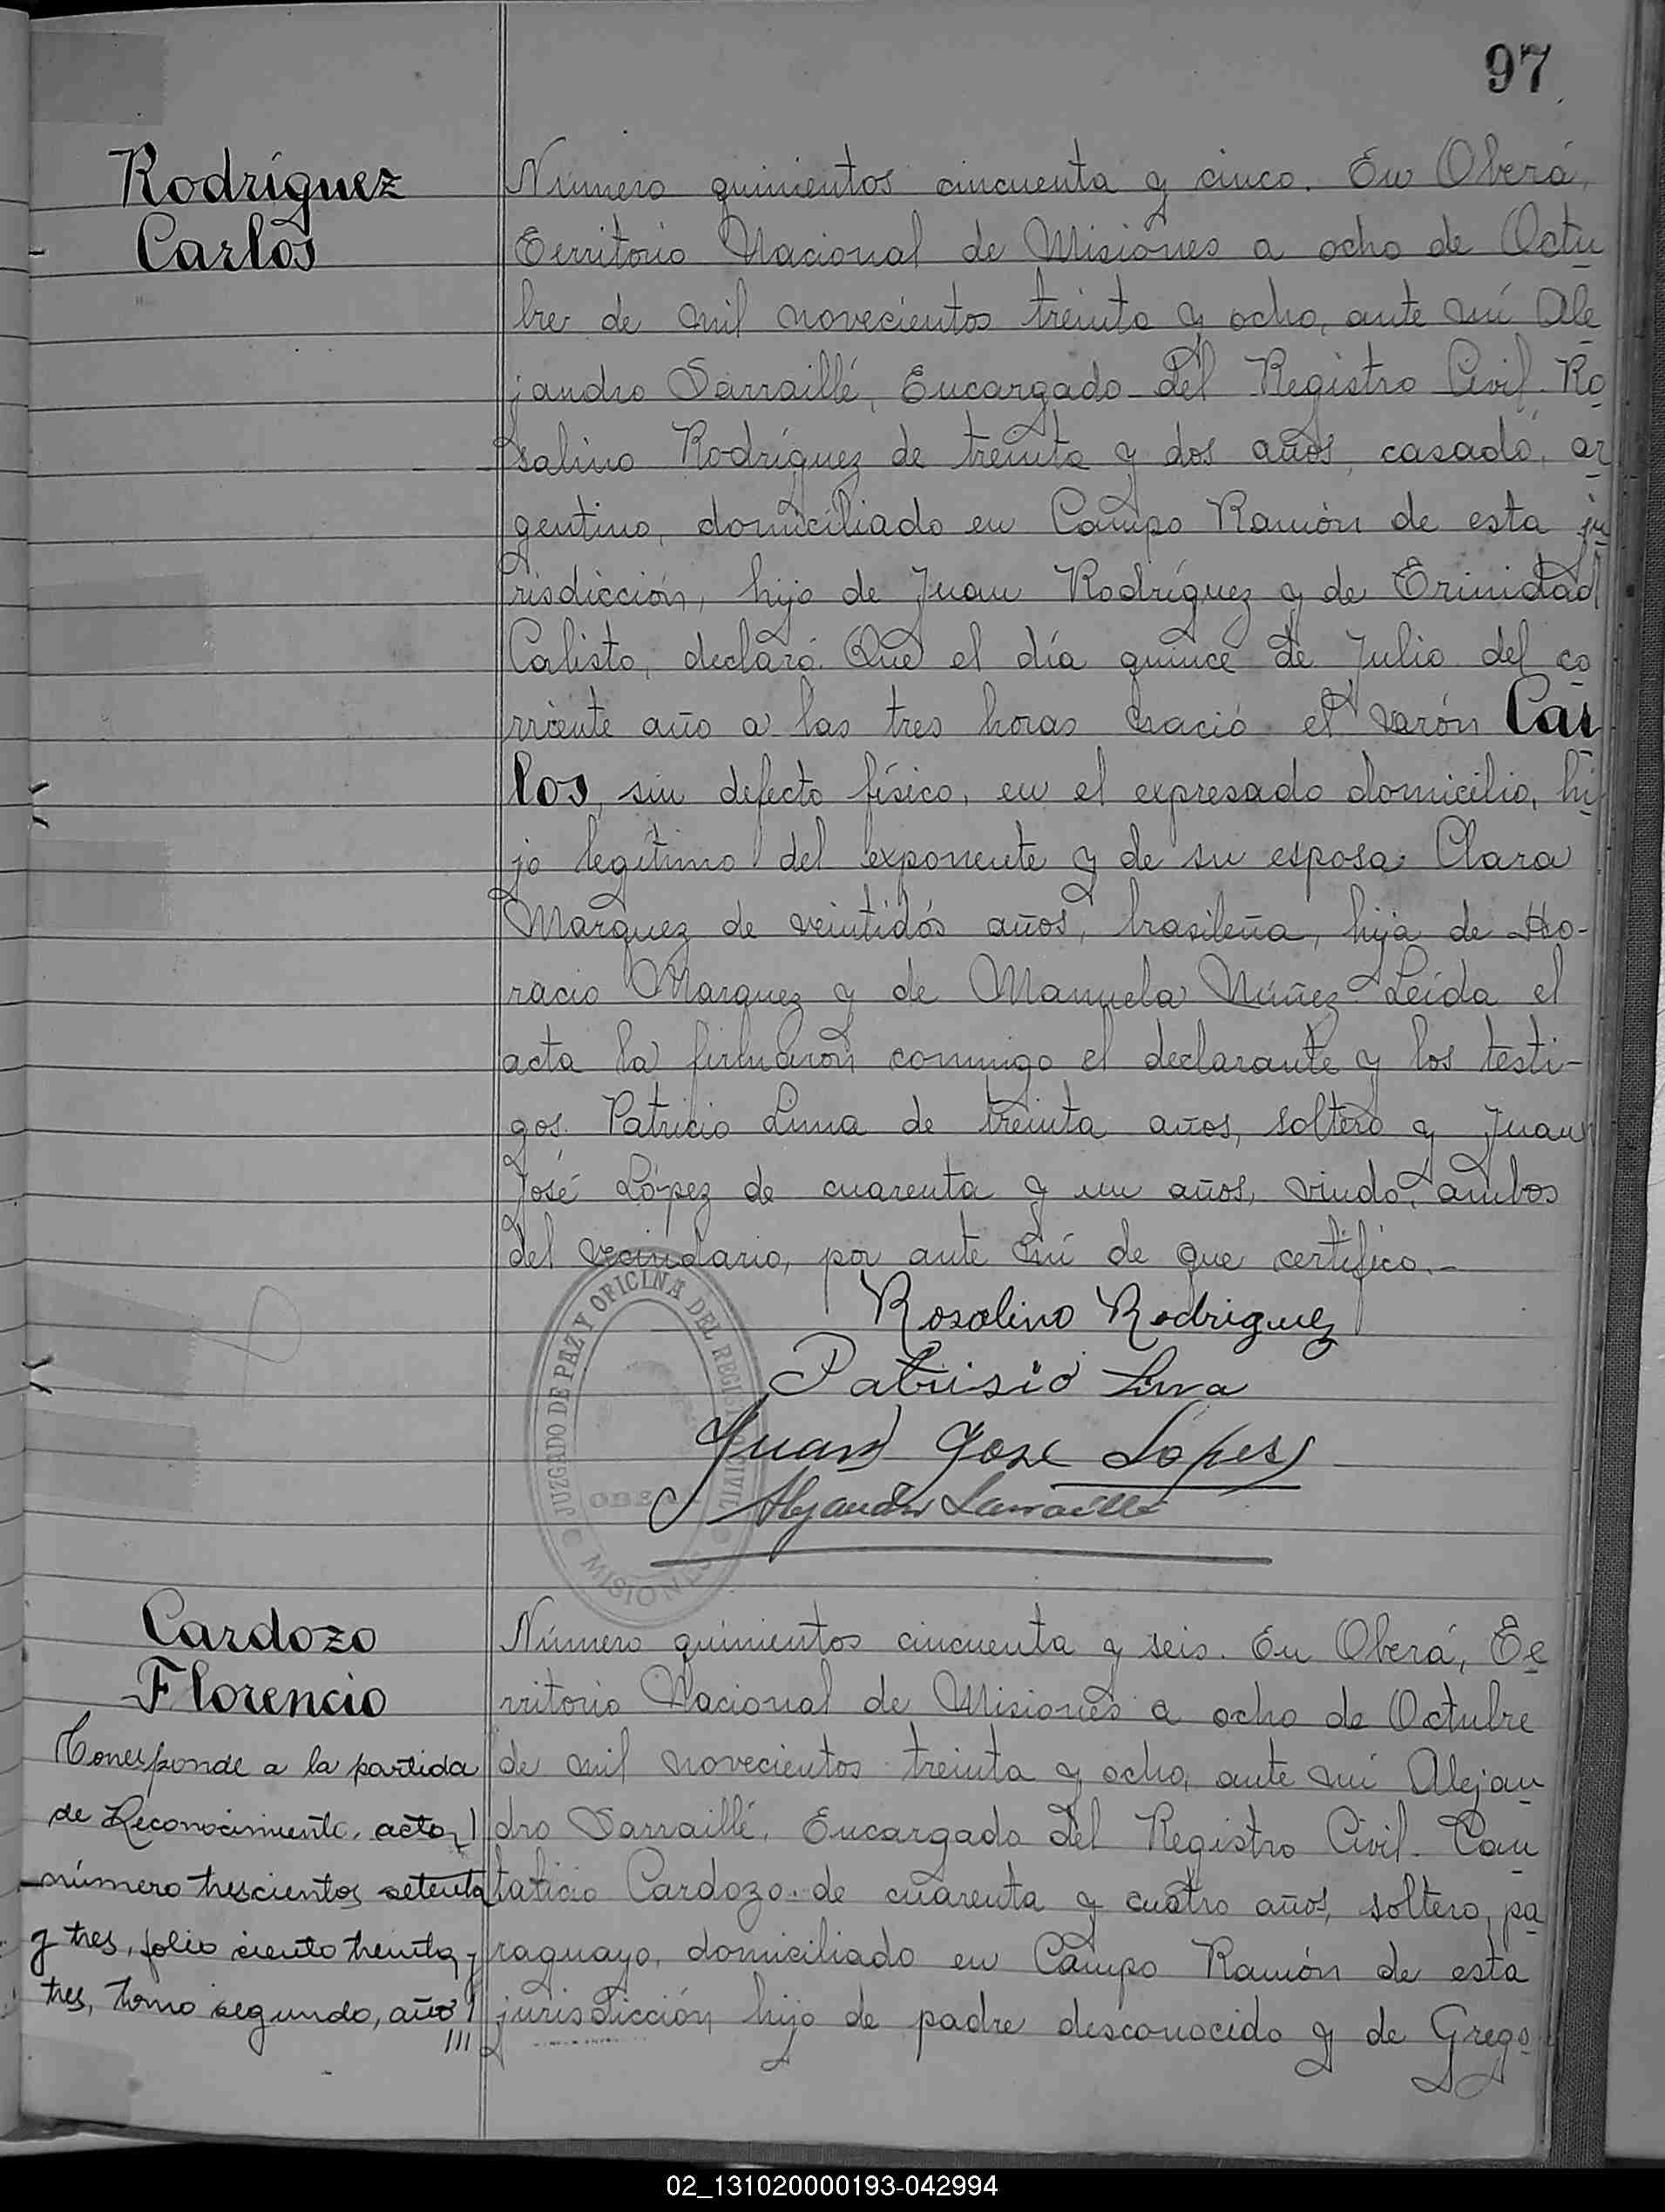 97
Rodríguez
Carlos
Número quinientos cincuenta y cinco. En Oberá,
Territorio Nacional de Misiones a ocho de Octu
bre de mil novecientos treinta y ocho, ante mí Ale
jandro Sarraillé, Encargado del Registro Civil. Ro
salino Rodríguez de treinta y dos años, casado, ar
gentino, domiciliado en Campo Ramón de esta ju
risdicción, hijo de Juan Rodríguez y de Trinidad
Calisto, declaró: Que el día quince de Julio del co
rriente año a las tres horas nació el varón Car
los, sin defecto físico, en el expresado domicilio, hi
jo legítimo del exponente y de su esposa Clara
Marquez de veintidós años, brasileña, hija de Ho-
racio Marquez y de Manuela Núñez. Leída el
acta la firmaron conmigo el declarante y los testi-
gos. Patricio Luna de treinta años, soltero y Juan
José López de cuarenta y un años, viudo, ambos
del vecindario, por ante mí de que certifico.-
Rosalino Rodriguez
Patrisio Luna
Juan Jose Lópes
Alejandro Sarraillé
JUZGADO DE PAZ Y OFICINA DEL REGISTRO CIVIL
OBERA
MISIONES
Cardozo
Florencio
Corresponde a la partida
de Reconocimiento, acta
número trescientos setenta
y tres, folio ciento treinta y
tres, tomo segundo, año
///
Número quinientos cincuenta y seis. En Oberá, Te
rritorio Nacional de Misiones a ocho de Octubre
de mil novecientos treinta y ocho, ante mí Alejan
dro Sarraillé, Encargado del Registro Civil. Can
talicio Cardozo de cuarenta y cuatro años, soltero, pa
raguayo, domiciliado en Campo Ramón de esta
jurisdicción hijo de padre desconocido y de Grego
02_131020000193-042994